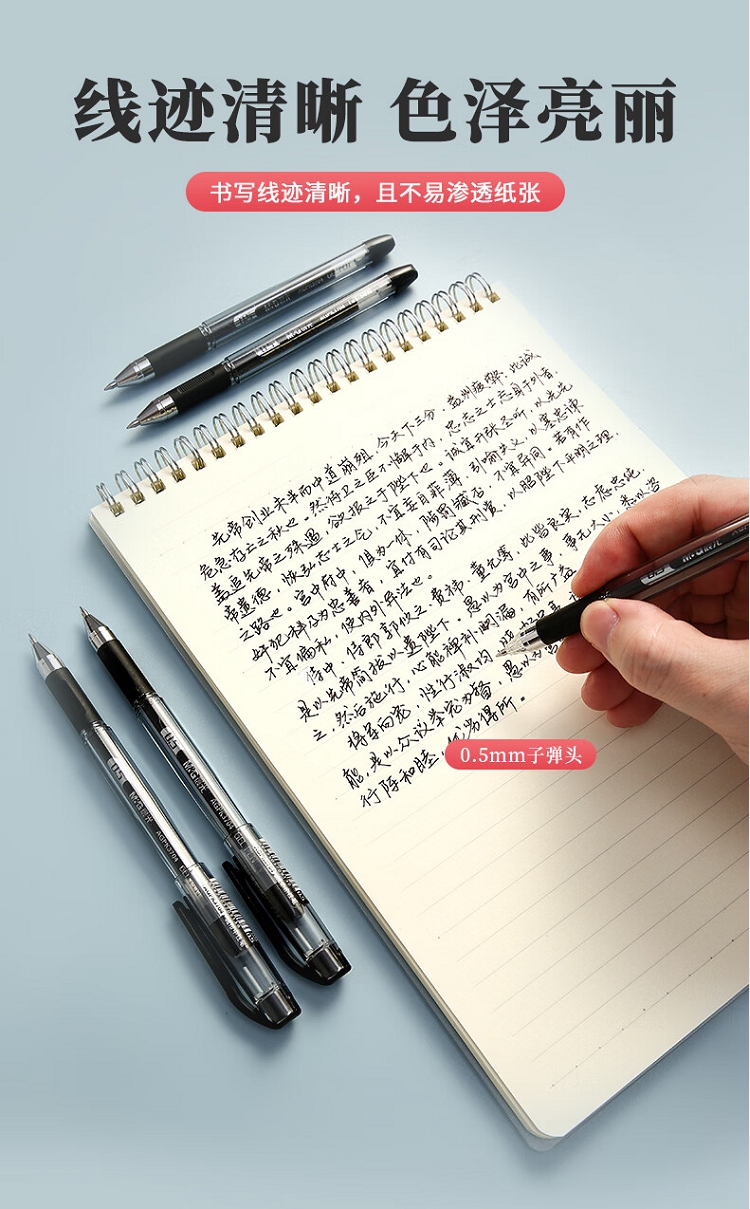 线迹清晰 色泽亮丽
书写线迹清晰，且不易渗透纸张
先帝创业未半而中道崩殂，今天下三分，益州疲弊，此诚
危急存亡之秋也。然侍卫之臣不懈于内，忠志之士忘身于外者，
盖追先帝之殊遇，欲报之于陛下也。诚宜开张圣听，以光先
帝遗德，恢弘志士之气，不宜妄自菲薄，引喻失义，以塞忠谏
之路也。宫中府中，俱为一体，陟罚臧否，不宜异同。若有作
奸犯科及为忠善者，宜付有司论其刑赏，以昭陛下平明之理，
不宜偏私，使内外异法也。
侍中、侍郎郭攸之、费祎、董允等，此皆良实，志虑忠纯，
是以先帝简拔以遗陛下。愚以为宫中之事，事无大小，悉以咨
之，然后施行，必能裨补阙漏，有所广益
将军向宠，性行淑均，晓畅军事
能，是以众议举宠为督，愚以为营
行阵和睦，优劣得所。
0.5mm子弹头
0.5 M&G晨光 AGPK3704
0.5 M&G晨光 AGPK3704
0.5 M&G晨光